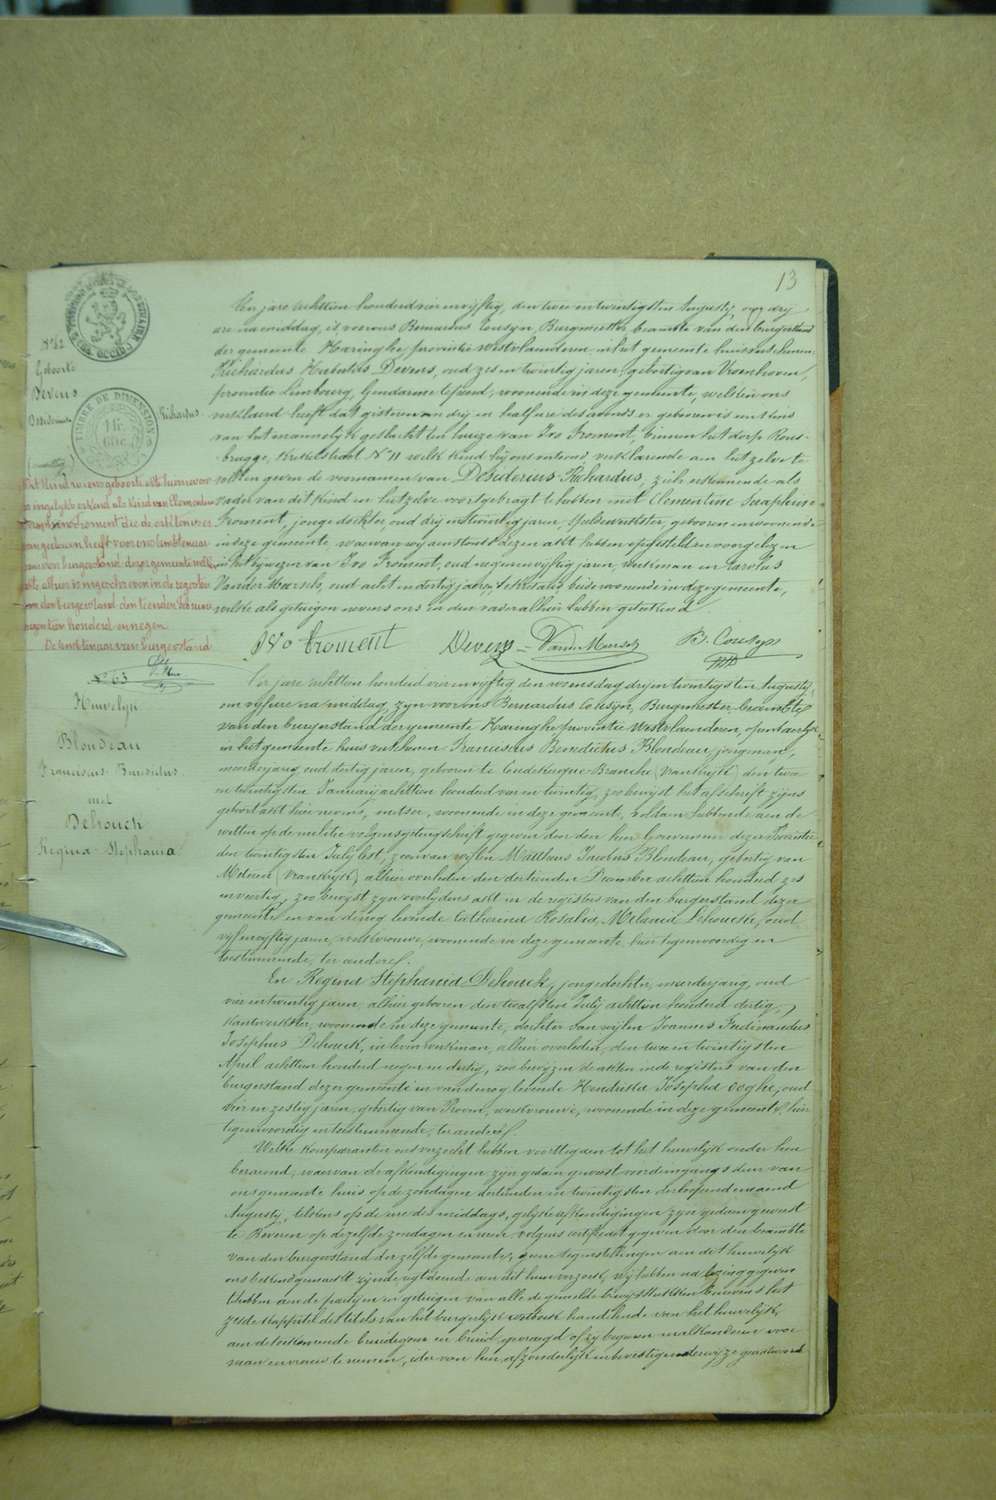 13
N° 62
Geboorte
Devens
Desiderius Richardus
TIMBRE DE DIMENSION
Het kind wiens geboorte akt hiernevens
is ingelyfd erkend als kind van Clementine
Seraphine Froment die de erkkenis er
van gedaan heeft voor ons Ambtenaar
van den burgerstand dezer gemeente welke
akte alhier is ingeschreven in de registers
van den burgerstand den tienden Februari
negentien honderd en negen
De Ambtenaar van burgerstand
Ten jare achttien honderd vier en vyftig, den twee en twintigsten Augusty, op drij
ure na middag, is voor ons Bernardus Cousyn, Burgmeester beambte van den burgerstand
der gemeente Haringhe provintie Westvlaanderen, in het gemeente huis verschenen
Richardus Hubertus Devens, oud zes en twintig jaren, geboortig van Vroenhoven,
provintie Limbourg, Gendarme te peerd, woonende in deze gemeente, welk in ons
verklaerd heeft dat gisteren drij en half ure des avonds er geboren is een kind
van het mannelyk geslacht ten huize van Ivo Froment, binnen het dorp Rous-
brugge, Kerkestraet N° 11 welk kind hij ons vertoont verklarende aen hetzelve te
willen geven de voornamen van Desiderius Richardus, zich erkennende als
vader van dit kind en hetzelve voortgebragt te hebben met Clementine Seraphine
Froment, jonge dochter, oud drij en twintig jaren, speldewerkster, geboren en woonende
in deze gemeente, waervan wij aenstonts dezen akt hebben opgesteld en voorgelezen
in het bywezen van Ivo Froment, oud negen en vyftig jaren, werkman en Carolus
Vander Meersch, oud acht en dertig jaren, Sekretaris beide woonende in deze gemeente,
welke als getuigen nevens ons en den vader alhier hebben geteekend
Ivo froment Devens VanderMeersch B. Cousyn
N° 63
Huwelyk
Blondeau
Franciscus Benedictus
met
Dehouck
Regina Stephania
Ten jare achttien honderd vier en vyftig den woensdag drij en twintigsten Augusty,
om vyf ure na middag, zyn voor ons Bernardus Cousyn, Burgmeester beambte
van den burgerstand der gemeente Haringhe provintie Westvlaanderen, openbaerlyk
in het gemeente huis verschenen Franciscus Benedictus Blondeau, jongman,
meerderjarig oud dertig jaren, geboren te Coudekerque-Branche (Vrankryk) den twee
en twintigsten January achttien honderd vier en twintig, zoo bewyst het afschrift zyns
geboortakt hier nevens, metser, woonende in deze gemeente, voldaen hebbende aen de
wetten op de militie volgens getuigschrift gegeven door den heer Gouverneur dezer Provintie
den twintigsten July lest, zoon van wylen Mattheus Jacobus Blondeau, geboortig van
(Vrankryk) alhier overleden den dertienden December achttien honderd zes
en veertig, zoo bewyst zyn overlydens akt in de registers van den burgerstand dezer
gemeente en van de nog levende Catherina Rosalia Melania Dehoucke, oud
vyf en vyftig jaren, werkvrouwe, woonende in deze gemeente hier tegenwoordig en
toestemmende, ter eendere.
En Regina Stephania Dehouck, jonge dochter, meerderjarig, oud
vier en twintig jaren, alhier geboren den twaelfsten July achttien honderd dertig,
kantwerkster, woonende in deze gemeente, dochter van wylen Joannes Ferdinandus
Josephus Dehouck, in leven werkman, alhier overleden, den twee en twintigsten
April achttien honderd negen en dertig, zoo bewyzen de akten in de registers van den
burgerstand dezer gemeente en van de nog levende Henrietta Josepha Cogghe, oud
vier en zestig jaren, geboortig van Proven, werkvrouwe, woonende in deze gemeente, hier
tegenwoordig en toestemmende, ter andere.
Welke komparanten ons verzocht hebben voorttegaen tot het huwelyk onder hen
beraemd, waervan de afkondigingen zyn gedaen geweest voor den ingang der deur van
ons gemeente huis op de zondagen dertienden en twintigsten der loopende maend
Augusty, telkens op de ure des middags, gelyke afkondigingen zyn gedaen geweest
te op dezelfde zondagen en uren volgens certificaet gegeven door den beambte
van den burgerstand der zelfde gemeente, geene tegenstellingen aen dit huwelyk
ons bekend gemaekt zynde regt doende aen dit hun verzoek, wij hebben na lezing gegeven
t'hebben aen de partyen en getuigen van alle de gemelde bewysstukken benevens het
zesde kappittel des titels van het burgerlyk wetboek handelende van het huwelyk,
aen de toekomende bruidegom en bruid gevraegd of zij begeeren malkanderen voor
man en vrouw te nemen, ider van hen afzonderlyk en bevestigenderwyze geantwoord